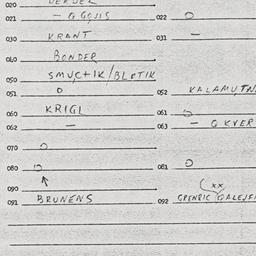 020
021 — GGOJIS 022 O
030 KRANT 031 —
040 BONDER
050 SMUC+IK/BLOTIK
051 O 052 KALAMUTN
060 KRIGL 061 O
062 — 063 — GKVER
070 O
080 O 081 O
090 XX
091 BRUNENS 092 GRENRIC GALEJF